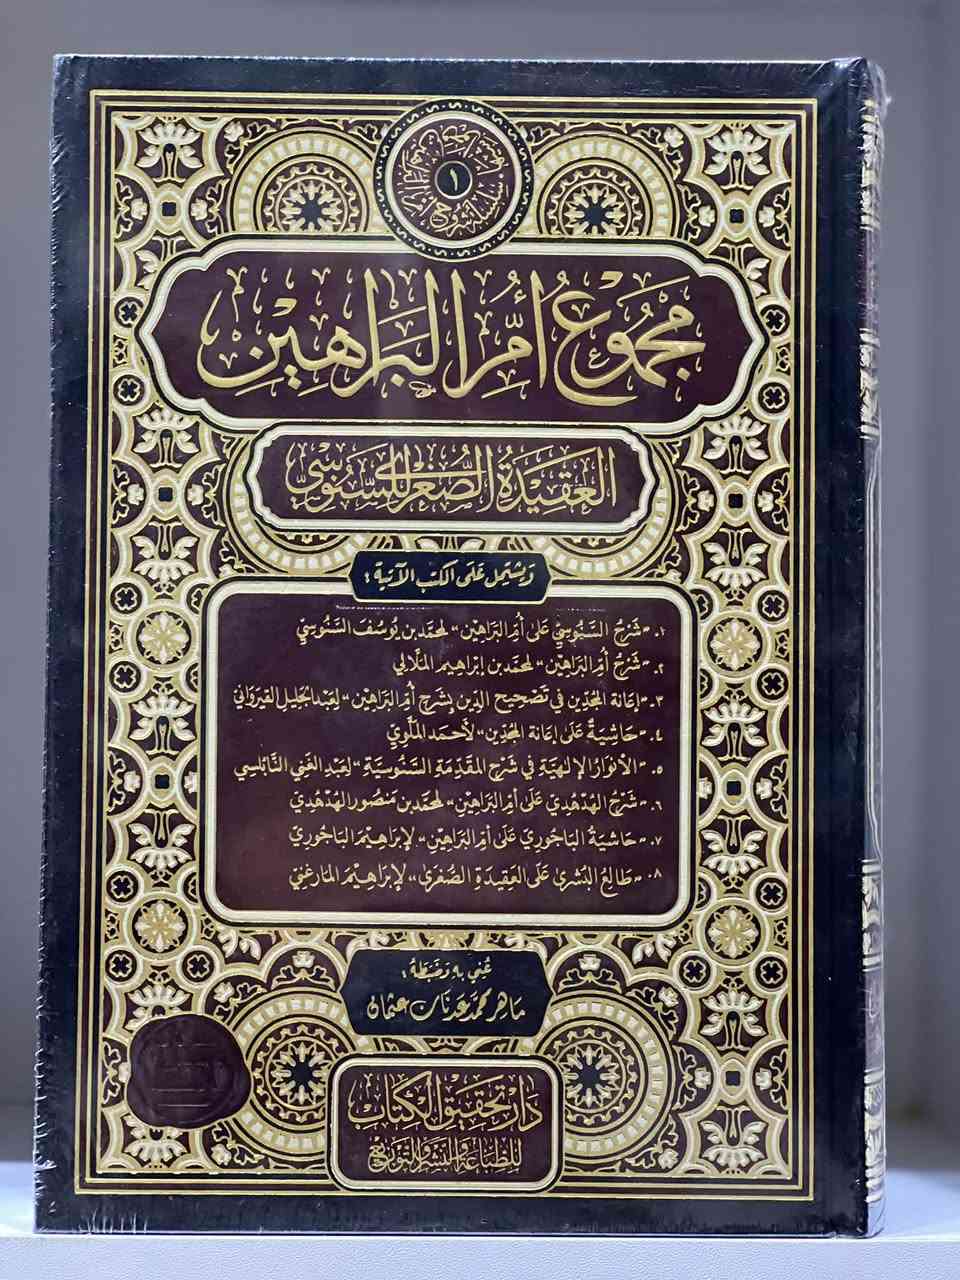 ١
مَجْمُوعُ أُمِّ الْبَرَاهِيْنِ
العَقِيْدَةُ الصُّغْرَىٰ لِلسَّنُوسِيِّ
وَيَشْتَمِلُ عَلَى الكُتُبِ الآتِيَةِ :
١. "شَرْحُ السَّنُوسِيِّ عَلَى أُمِّ البَرَاهِيْنِ" لمحمَّد بن يُوسُفَ السَّنُوسِيِّ
٢. "شَرْحُ أُمِّ البَرَاهِيْنِ" لمحمَّد بن إِبْرَاهِيمَ المَلَّالِي
٣. "إِعَانَة المُجِدِّين فِي تَصْحِيحِ الدِّين بِشَرْحِ أُمِّ البَرَاهِيْنِ" لِعَبدِ الجَلِيلِ القَيْرَوَانِي
٤. "حَاشِيَةٌ عَلَى إِعَانَة المُجِدِّين" لأَحمَد المَلَّوِيّ
٥. "الأَنْوَارُ الإِلٰهِيَّة فِي شَرْحِ المُقَدِّمَةِ السَّنُوسِيَّةِ" لِعَبْدِ الغَنِي النَّابْلسِي
٦. "شَرْحُ الهُدْهُدِي عَلَى أُمِّ البَرَاهِيْنِ" لمحمَّد بن مَنصُور الهُدْهُدِيّ
٧. "حَاشِيَةُ البَاجُورِي عَلَى أُمِّ البَرَاهِيْنِ" لإِبْرَاهِيمَ البَاجُورِيّ
٨. "طَالِعُ البُشْرَىٰ عَلَى العَقِيْدَةِ الصُّغْرَىٰ" لإِبْرَاهِيمَ المَارغَنِيّ
عُنِيَ بِهِ وَضَبَطَهُ :
مَاهِر محمَّد عَدنَان عثمان
دَار تَحقِيق الكِتَاب
لِلطِّبَاعَةِ وَالنَّشْرِ وَالتَّوْزِيعِ